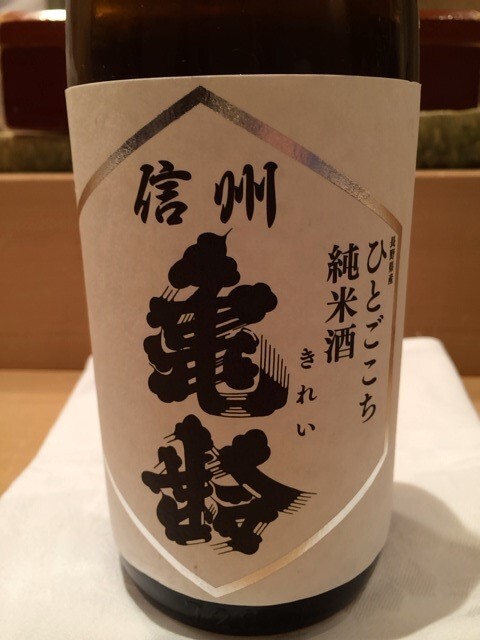 信州
亀齢
きれい
長野県産
ひとごこち
純米酒